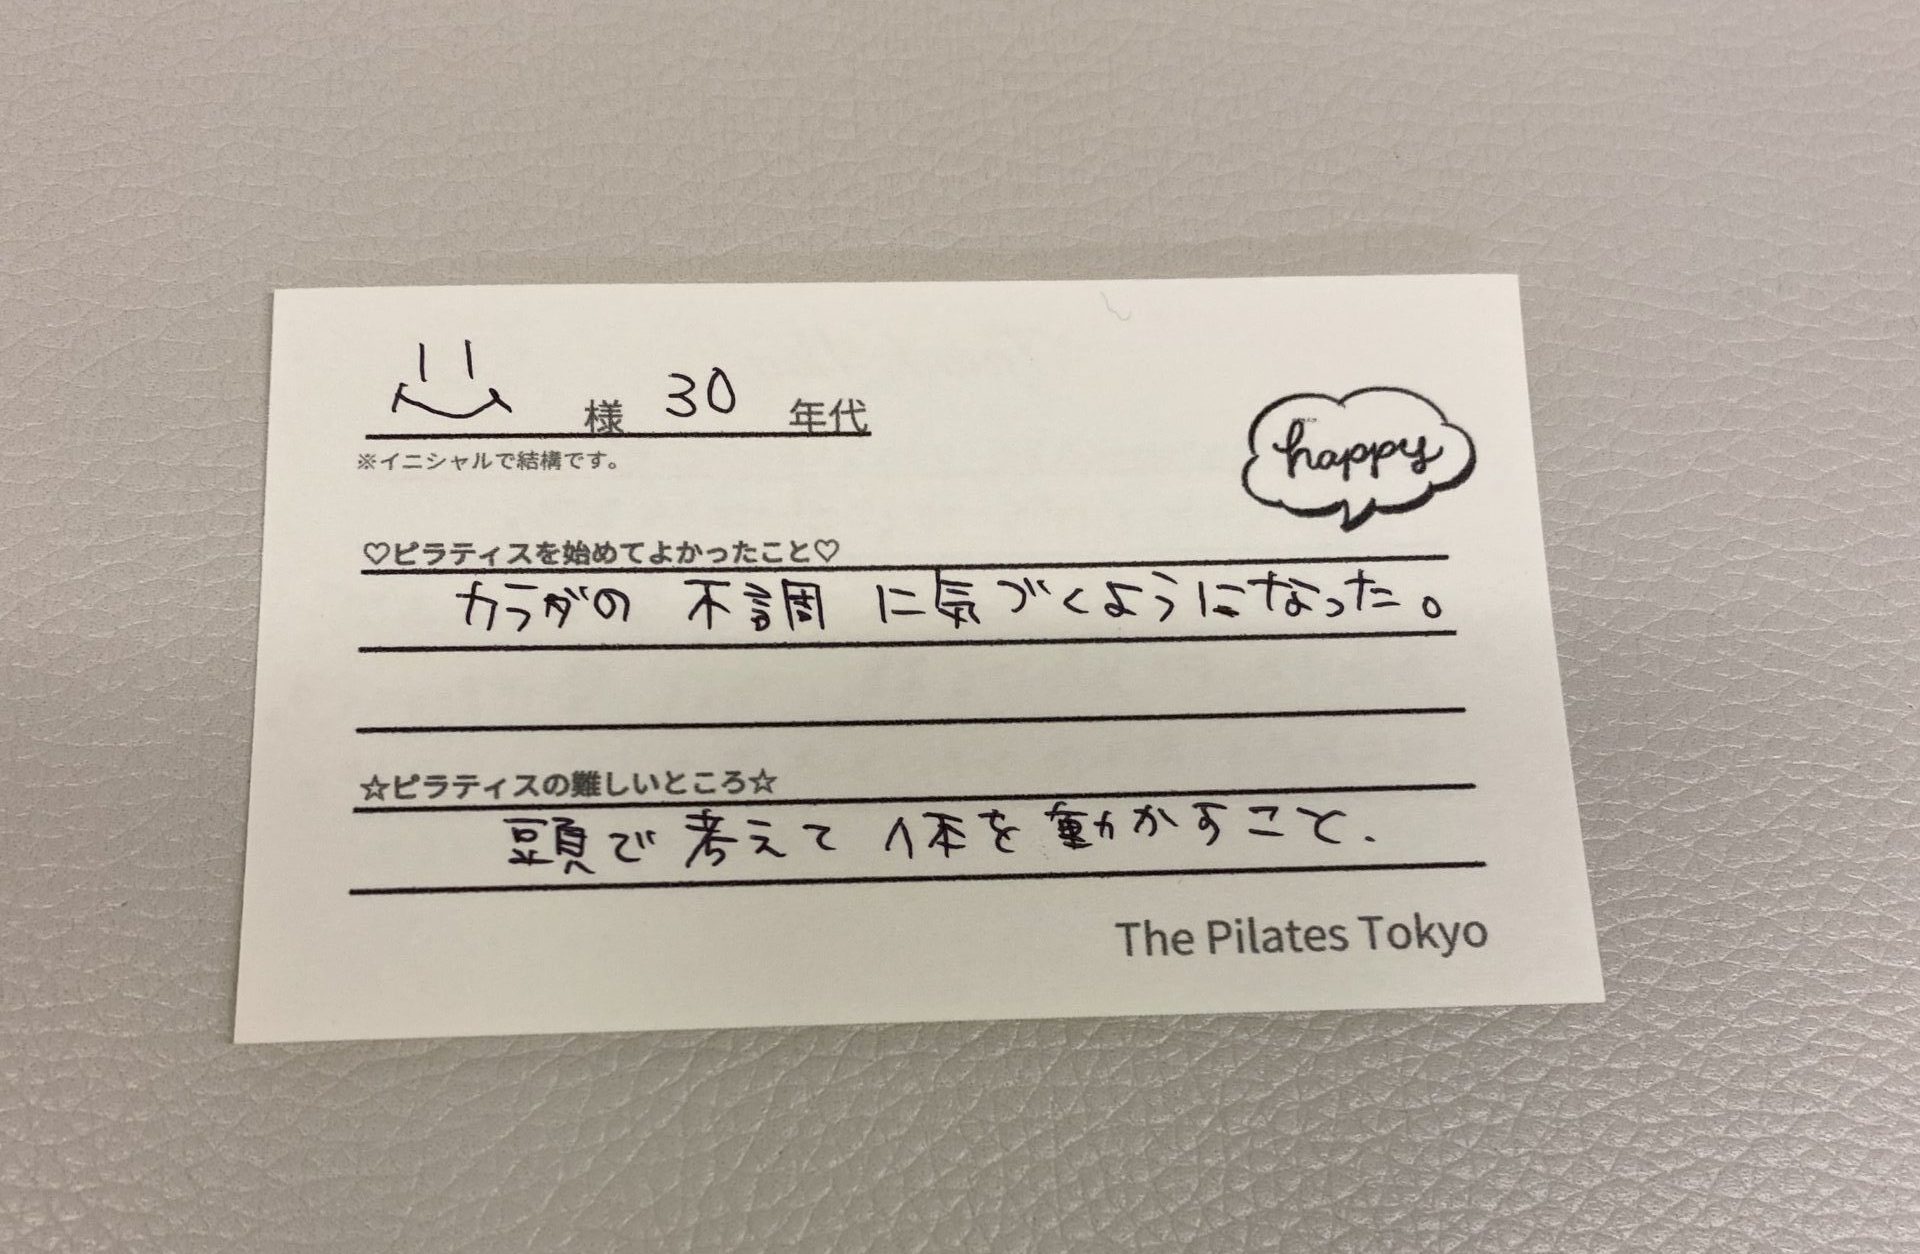 様 30 年代
※イニシャルで結構です。
happy
♡ピラティスを始めてよかったこと♡
カラダの 不調 に気づくようになった。
☆ピラティスの難しいところ☆
頭で考えて 体を動かすこと.
The Pilates Tokyo